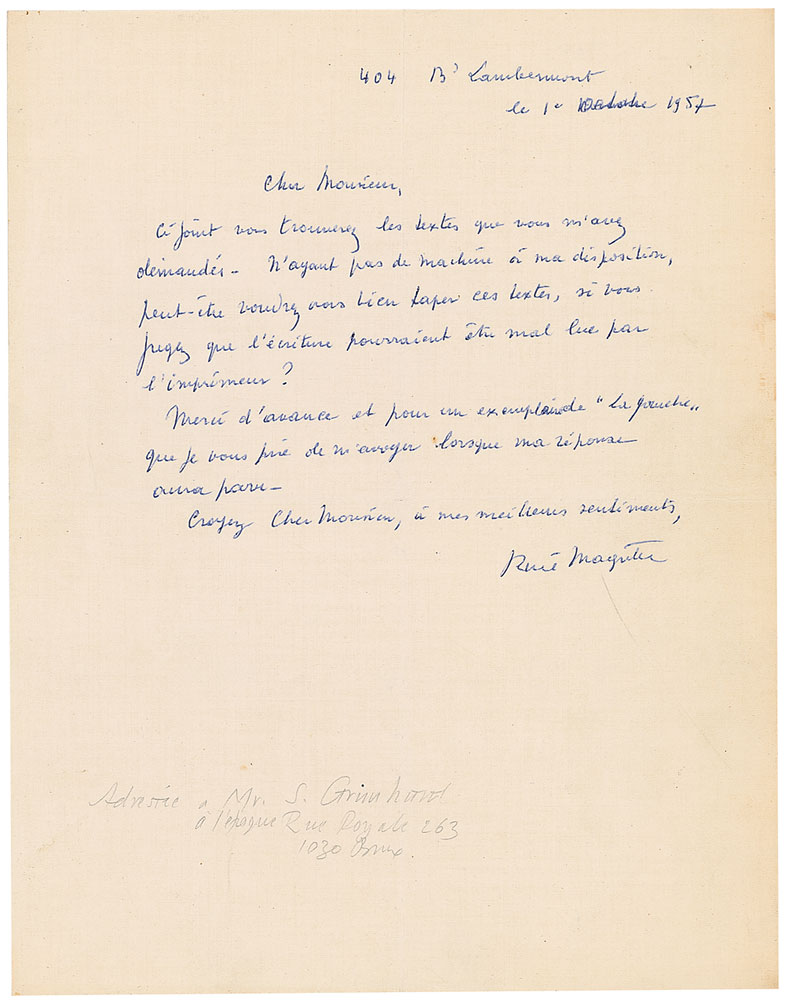 404 Bd Lambermont
le 1er Octobre 1957
Cher Monsieur,
Ci joint vous trouverez les textes que vous m'avez
demandés - N'ayant pas de machine à ma disposition,
peut-être voudrez vous bien taper ces textes, si vous
jugez que l'écriture pourraient être mal lue par
l'imprimeur ?
Merci d'avance et pour un exemplaire de "la gauche"
que je vous prie de m'envoyer lorsque ma réponse
aura paru -
Croyez Cher Monsieur, à mes meilleurs sentiments,
René Magritte
Adressée a Mr. S.
à l'époque Rue Royale 263
1030 Brux.